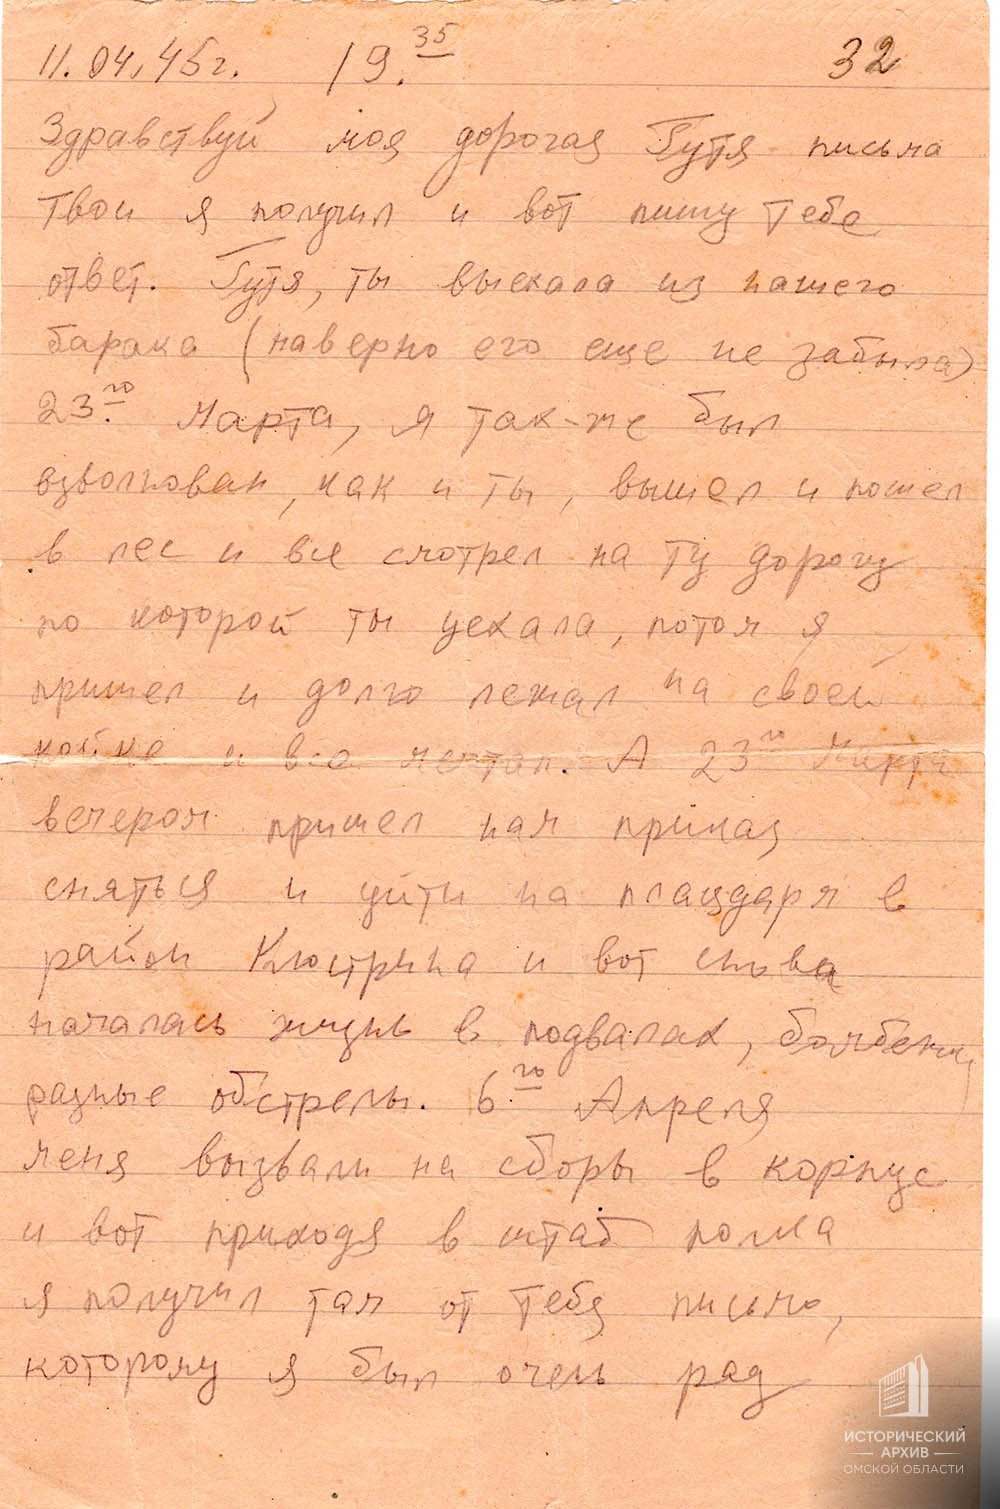 11.04.45г. 19.35 32
Здравствуй моя дорогая Гутя письма
твои я получил и вот пишу тебе
ответ. Гутя, ты выехала из нашего
барака (наверно его еще не забыла)
23го Марта, я так-же был
взволнован, как и ты, вышел и пошел
в лес и все смотрел на ту дорогу
по которой ты уехала, потом я
пришел и долго лежал на своей
койке и все мечтал. А 23го Марта
вечером пришел нам приказ
сняться и уйти на плацдарм в
район Кюстрина и вот снова
началась жизнь в подвалах, бомбежки,
разные обстрелы. 6го Апреля
меня вызвали на сборы в корпус
и вот приходя в штаб полка
я получил там от тебя письмо,
которому я был очень рад
ИСТОРИЧЕСКИЙ
АРХИВ
ОМСКОЙ ОБЛАСТИ